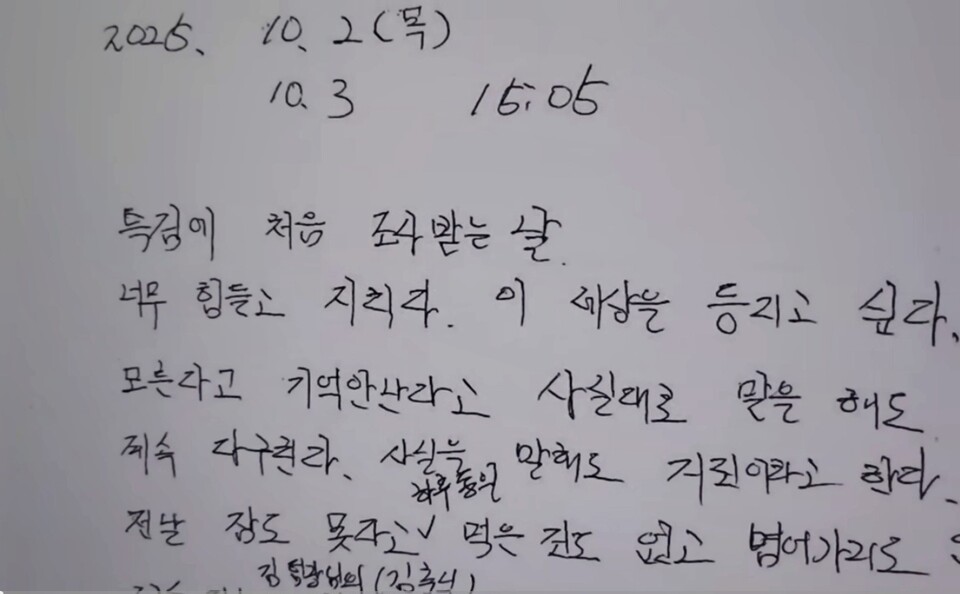 2025. 10. 2 (목)
10. 3 15:05
특검에 처음 조사받는 날.
너무 힘들고 지친다. 이 세상을 등지고 싶다.
모른다고 기억안난다고 사실대로 말을 해도
계속 다구친다. 사실을 말해도 거짓이라고 한다.
하루종일
전날 잠도 못자고✓ 먹은 것도 없고 멍어가리로
김